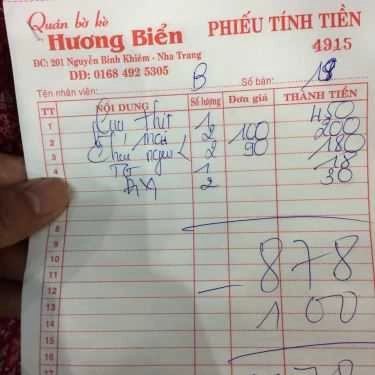 Quán bờ kè
Hương Biển
PHIẾU TÍNH TIỀN
4915
ĐC: 201 Nguyễn Bỉnh Khiêm - Nha Trang
DĐ: 0168 492 5305
Tên nhân viên: B Số bàn:
TT NỘI DUNG Số lượng Đơn giá THÀNH TIỀN
1 Cua thịt 1 450
2 2 100 200
3 2 90 180
4 1 18
2 30
8
9
10
11 878
12
13 - 100
14
15
16
17 78